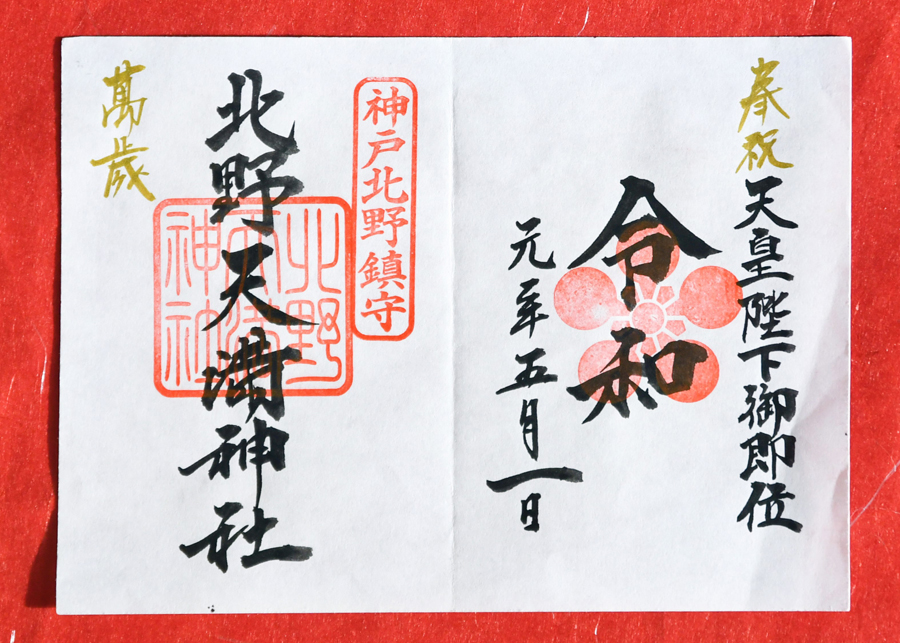 奉祝
天皇陛下御即位
令和
元年五月一日
神戸北野鎮守
北野天満神社
北野天満神社
萬歳